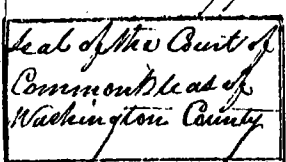 Seal of the Court of
Common Pleas of
Washington County